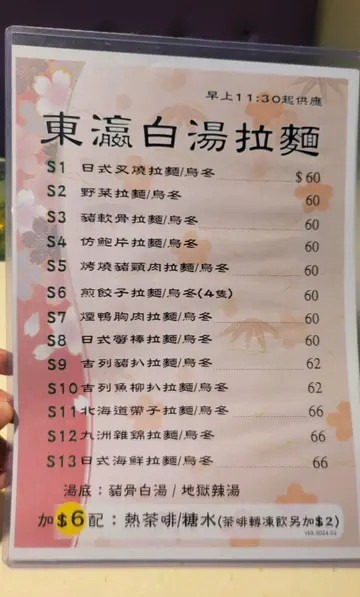 早上11:30起供應
東瀛白湯拉麵
S1 日式叉燒拉麵/烏冬 $60
S2 野菜拉麵/烏冬 60
S3 豬軟骨拉麵/烏冬 60
S4 仿鮑片拉麵/烏冬 60
S5 烤燒豬頸肉拉麵/烏冬 60
S6 煎餃子拉麵/烏冬(4隻) 60
S7 煙鴨胸肉拉麵/烏冬 60
S8 日式蟹棒拉麵/烏冬 60
S9 吉列豬扒拉麵/烏冬 62
S10 吉列魚柳扒拉麵/烏冬 62
S11 北海道帶子拉麵/烏冬 66
S12 九洲雜錦拉麵/烏冬 66
S13 日式海鮮拉麵/烏冬 66
湯底：豬骨白湯/地獄辣湯
加$6配：熱茶啡/糖水(茶啡轉凍飲另加$2)